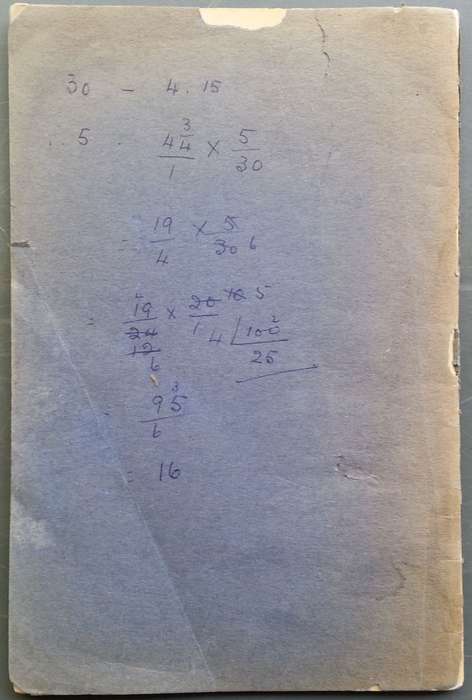 30 - 4.15
5. 4 3/4 / 1 × 5/30
= 19/4 × 5/30 6
= 19/24 12 6 × 20/1 10 5
4 100
25
= 95/6
= 16